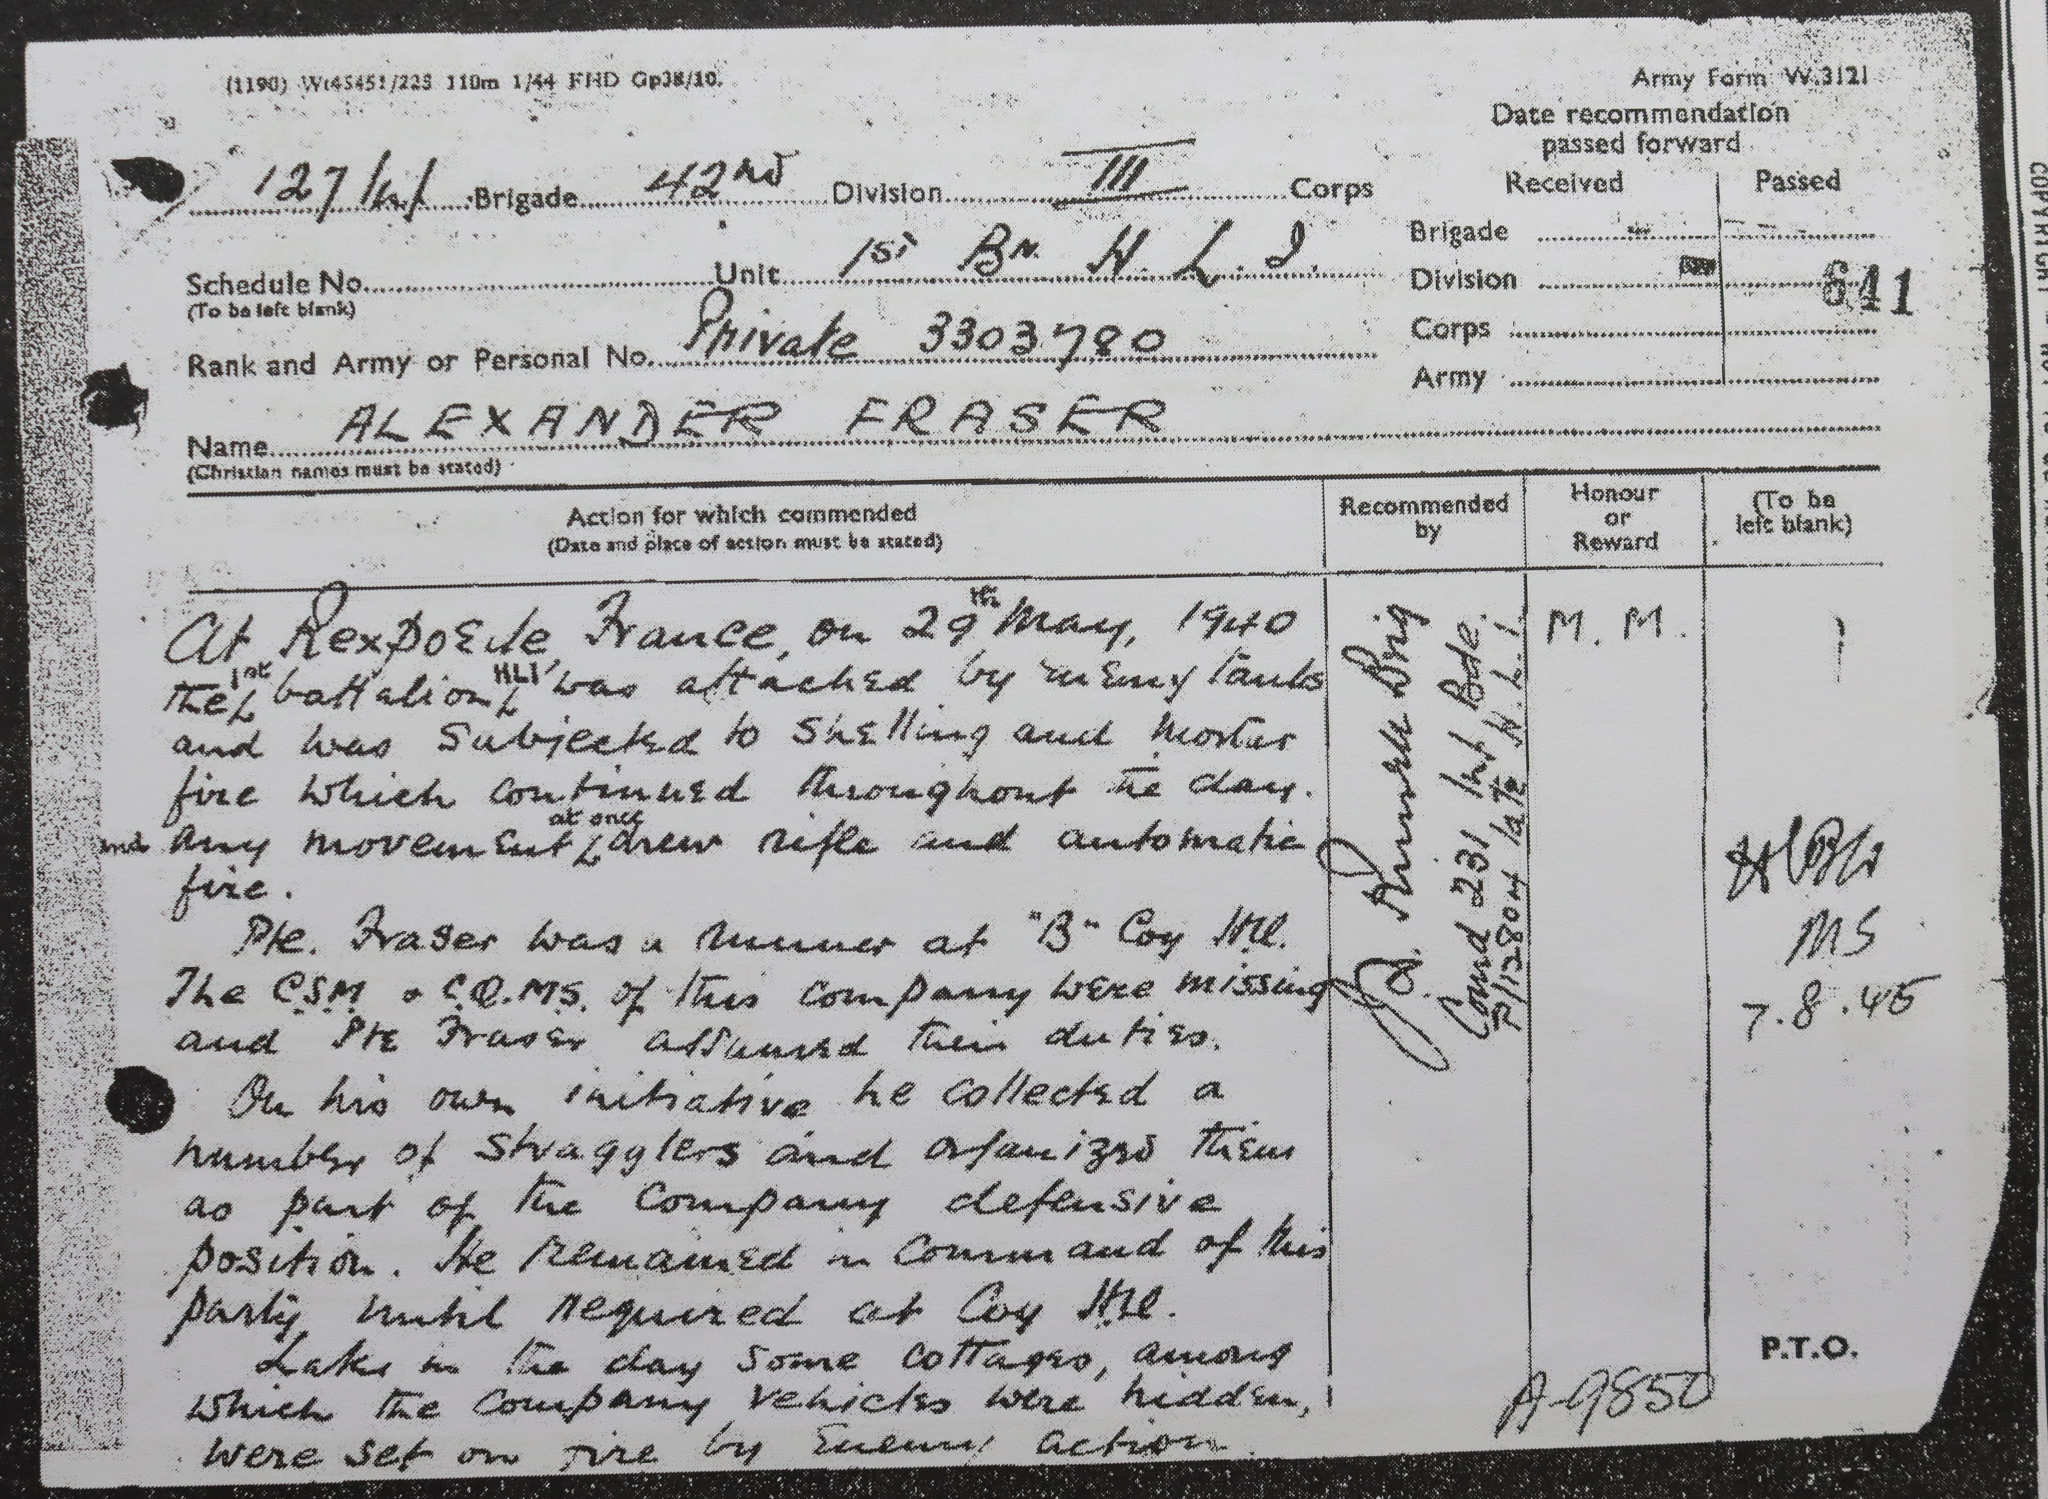 (1190) Wt45451/225 110m 1/44 FHD Gp38/10. Army Form W.3121
Date recommendation
passed forward
Received Passed
127 Brigade 42nd Division III Corps
Schedule No. Unit 1st Bn H. L. I.
(To be left blank)
Rank and Army or Personal No. Private 3303780
Name ALEXANDER FRASER
(Christian names must be stated)
Brigade
Division 641
Corps
Army
Action for which commended
(Date and place of action must be stated)
Recommended
by
Honour
or
Reward
(To be
left blank)
At Rexpoede France, on 29th May, 1940
the 1st battalion HLI was attacked by enemy tanks
and was subjected to shelling and mortar
fire which continued throughout the day.
and any movement at once drew rifle and automatic
fire.
Pte. Fraser was a runner at "B" Coy H.Q.
The C.S.M & C.Q.M.S. of this company were missing
and Pte Fraser assumed their duties.
On his own initiative he collected a
number of stragglers and organized them
as part of the company defensive
position. He remained in command of this
party until required at Coy H.Q.
Later in the day some cottages, among
which the company vehicles were hidden,
were set on fire by enemy action.
Brig
Comd 231 Inf Bde.
P/12804 late H.L.I.
M. M.
MS
7.8.45
P.T.O.
A-9850
COPYRIGHT